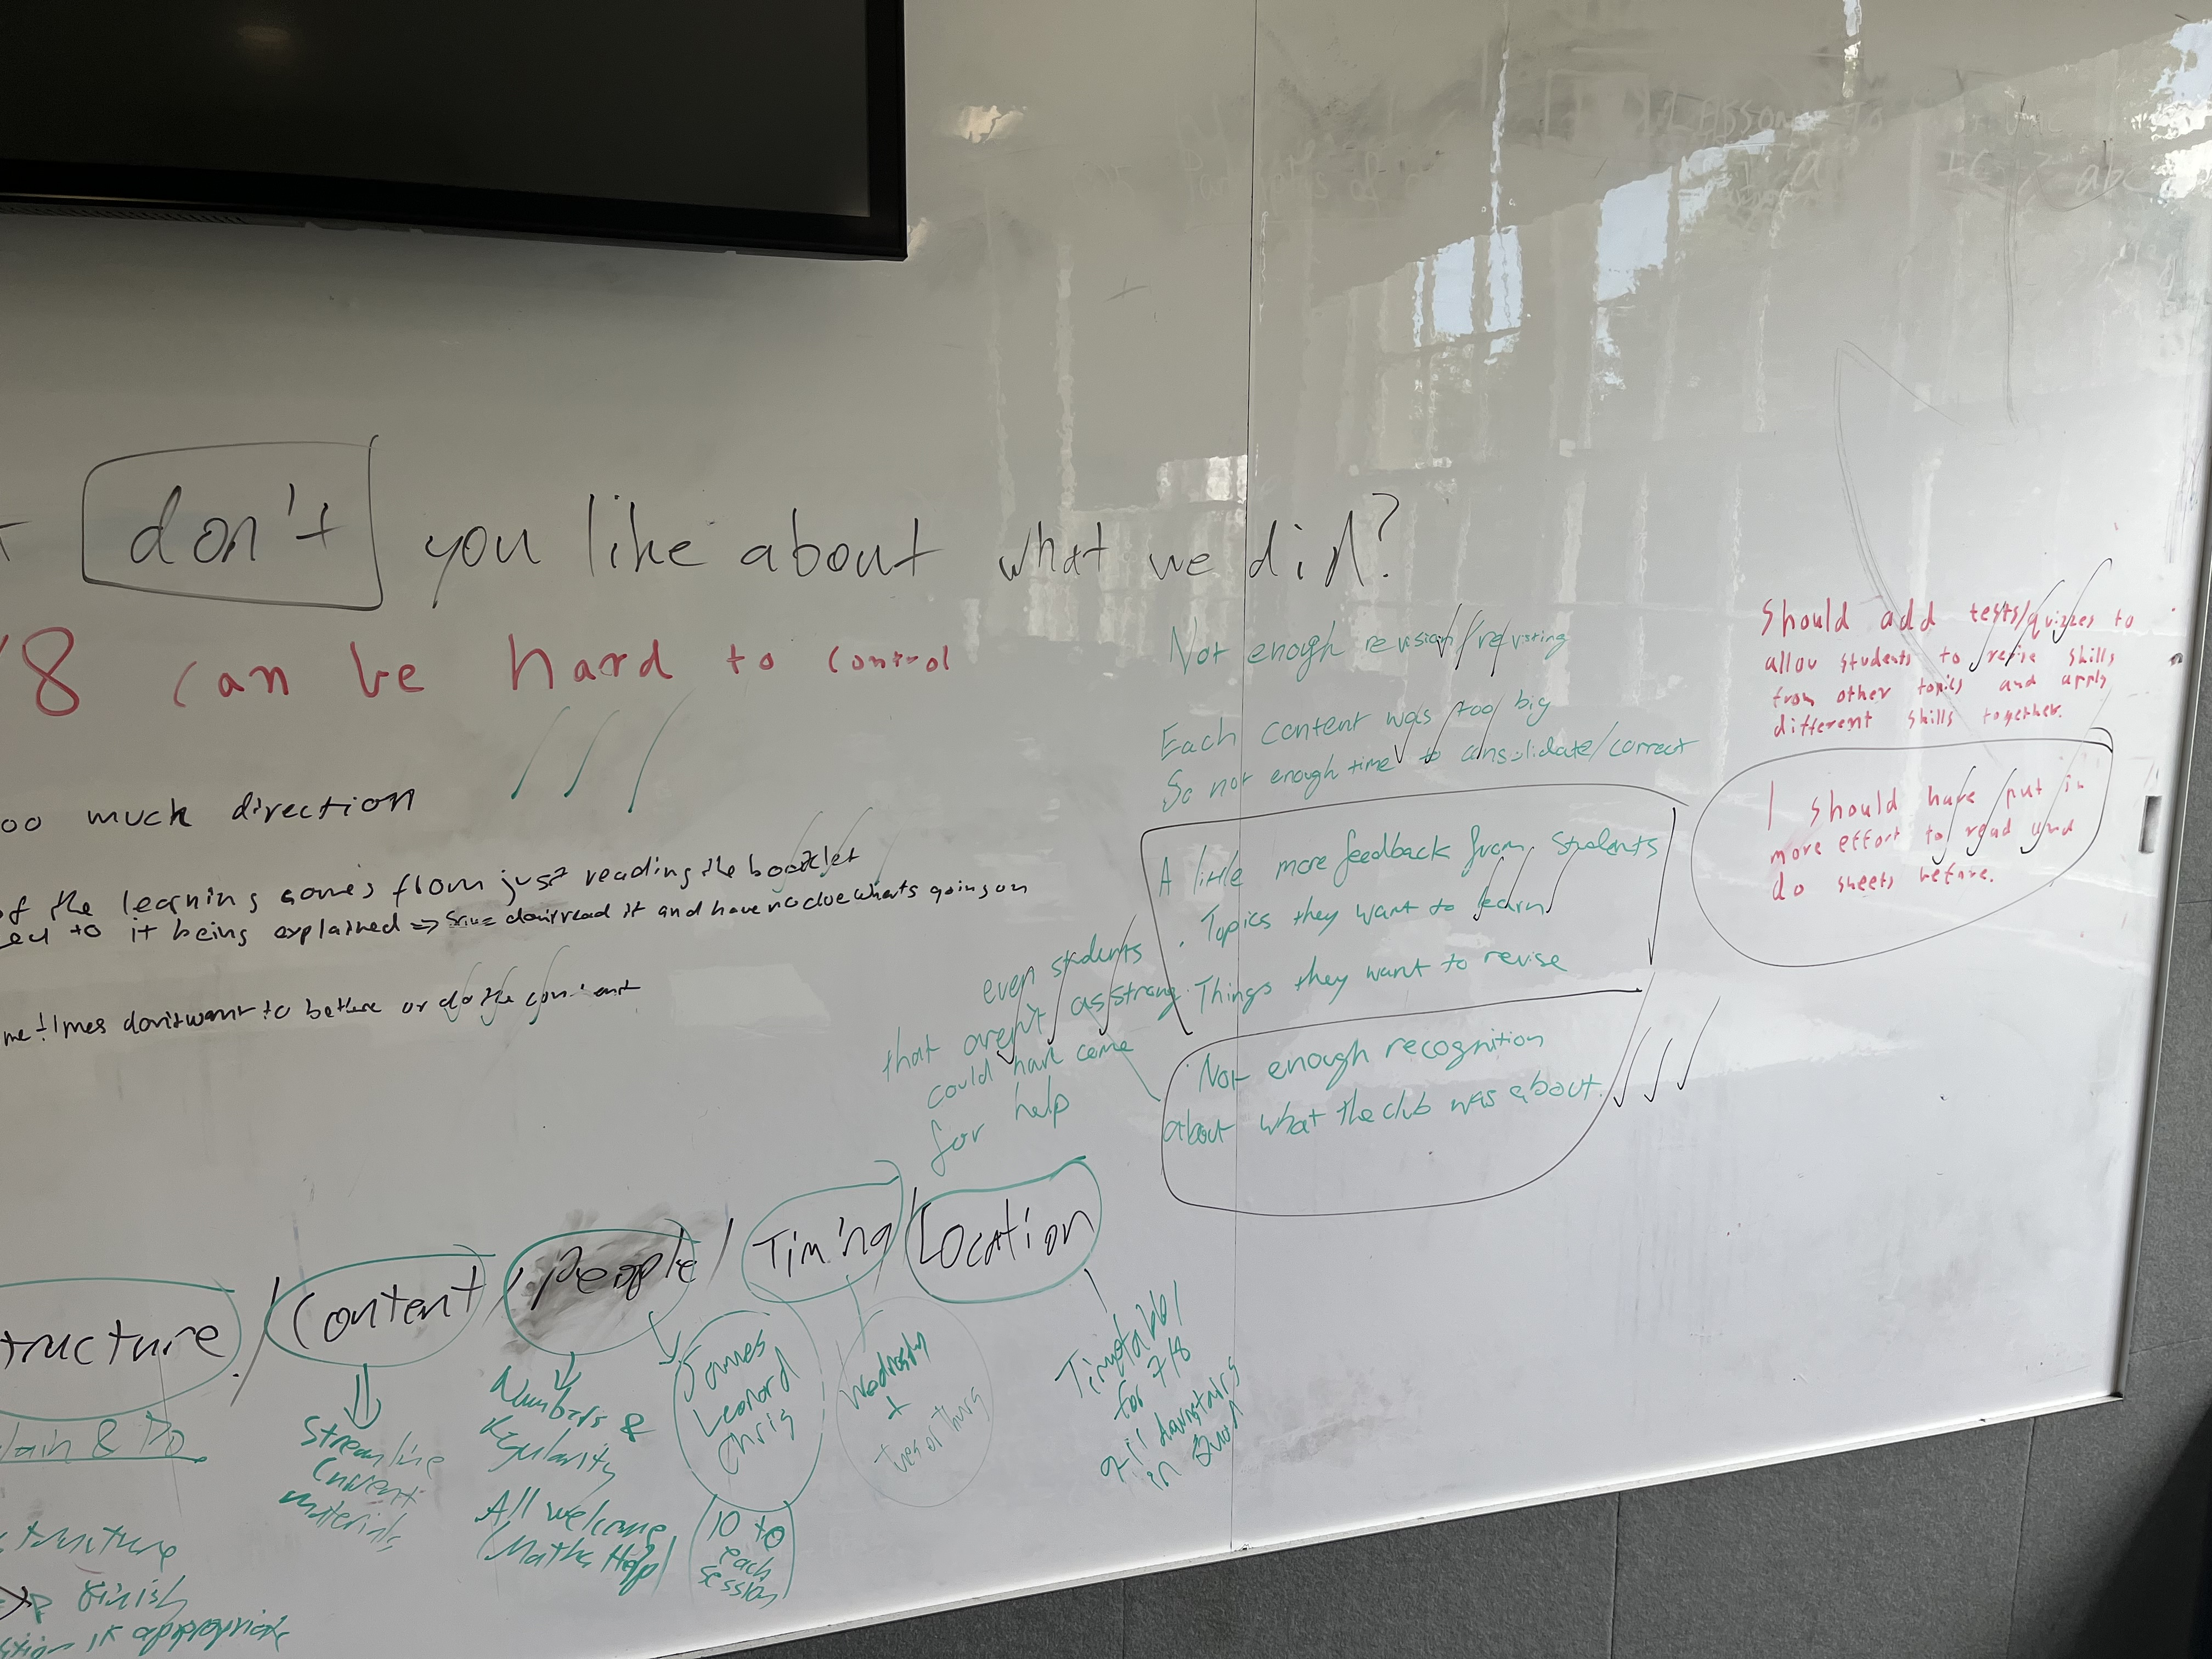 don't you like about what we did?
8 can be hard to control
oo much direction
of the learning comes from just reading the booklet
ed to it being explained => Some don't read it and have no clue whats going on
me times don't want to be there or do the content
Not enough revision/revisting
Each content was too big
So not enough time to consolidate/correct
A little more feedback from students
. Topics they want to learn
. Things they want to revise
even students
that aren't as strong
could have come
for help
Not enough recognition
about what the club was about.
Should add tests/quizzes to
allow students to revise skills
from other topics and apply
different skills together.
I should have put in
more effort to read and
do sheets before.
tructure / Content / People / Timing / Location
lain & Do
tructure
finish
if appropriate
Streamline
Current
materials
Numbers &
Regularity
All welcome
(Maths Help)
James
Leonard
Chris
10 to
each
session
Wednesday
+
Tues or Thurs
for 7/8
downstairs
in